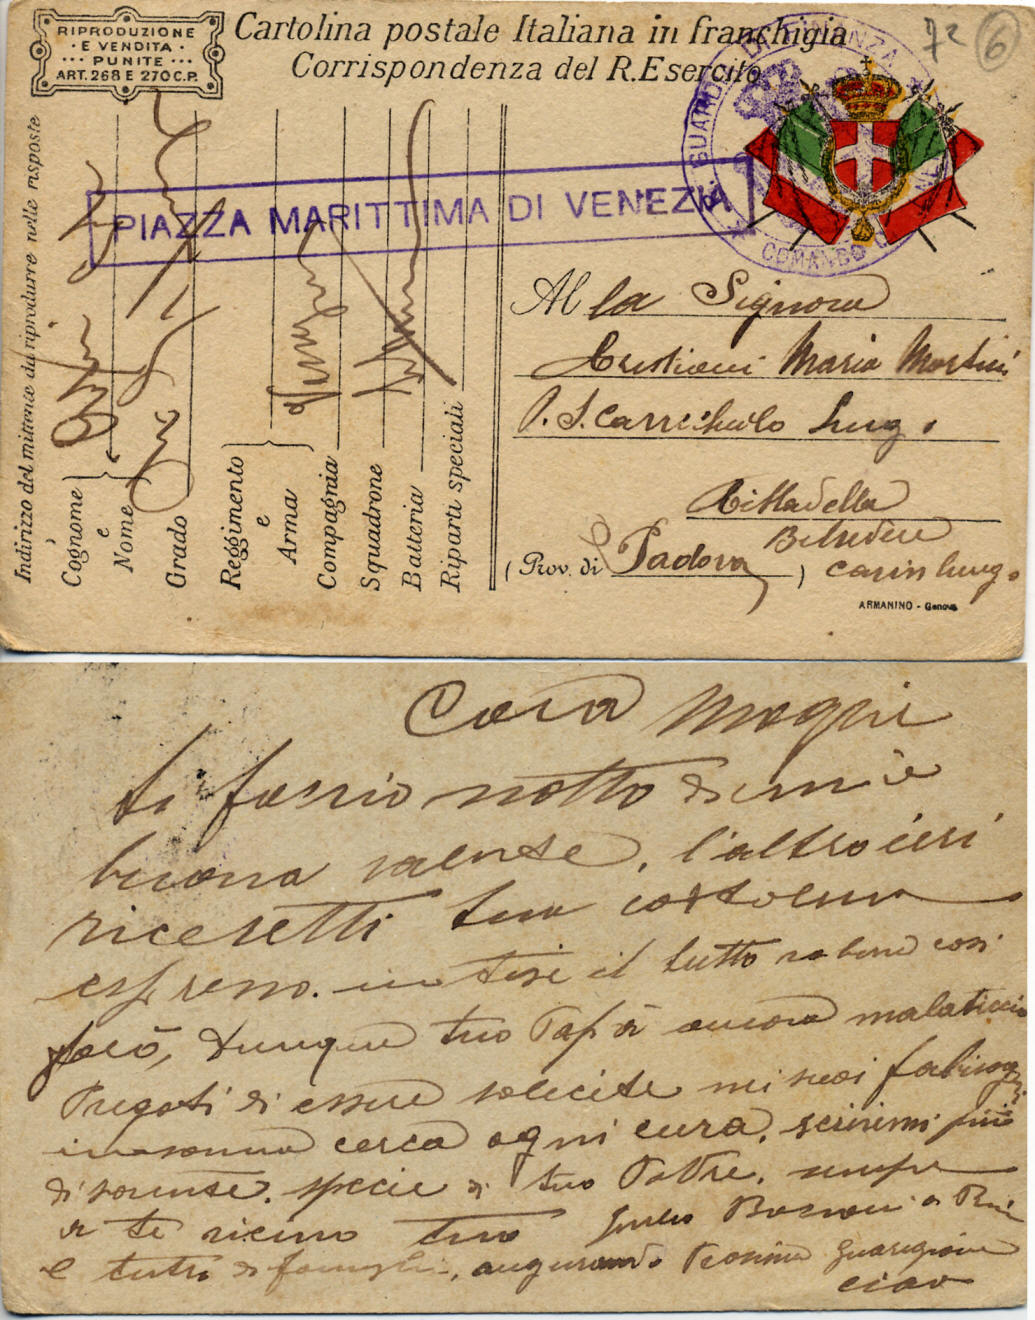 RIPRODUZIONE
E VENDITA
PUNITE
ART. 268 E 270 C.P.
Cartolina postale Italiana in franchigia
Corrispondenza del R.Esercito
72 6
PIAZZA MARITTIMA DI VENEZIA
GUARDIA DI FINANZA
COMANDO
Indirizzo del mittente da riprodurre nelle risposte
Cognome
e
Nome
Grado
Reggimento
e
Arma
Compagnia
Squadrone
Batteria
Riparti speciali
Alla Signora
Cristiani Maria Martini
Lung.
Cittadella
Belvedere
(Prov. di Padova)
ARMANINO - Genova
Cara
ti faccio notto di mie
buona salute, l'altro ieri
ricevetti tua cartolina
espresso. intesi il tutto va bene cosi
però, dunque tuo Papà ancora malaticcio
Pregoti di essere solecite
insomma cerca ogni cura, scrivimi più
di sovente. specie di tuo Padre. sempre
a te vicino tuo Giulio
e tutti di famiglia, augurando Prossima Guarigione
ciao